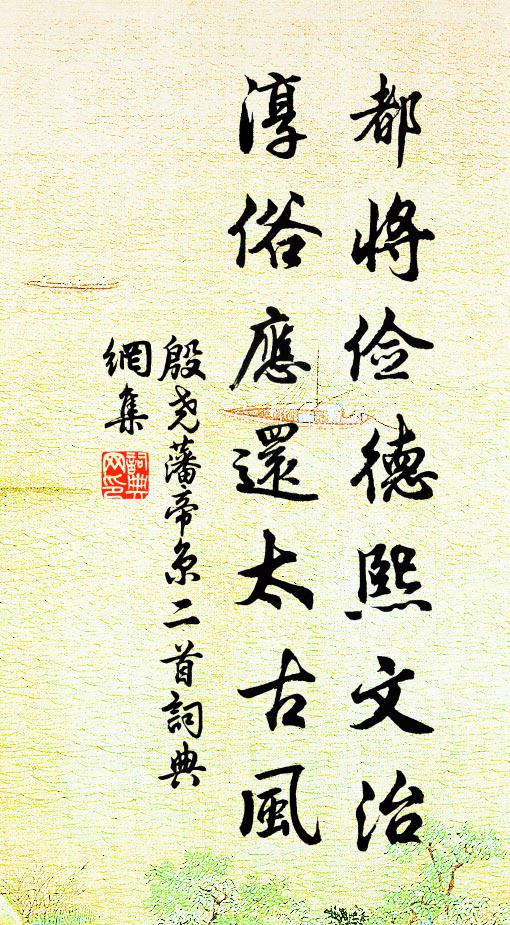 都將儉德熙文治
淳俗應還太古風
殷堯藩帝京二首詞典
網集
詞典網印